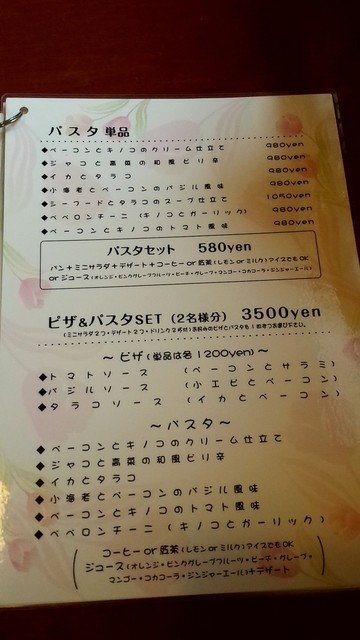 パスタ単品
◆ベーコンとキノコのクリーム仕立て 980yen
◆ジャコと高菜の和風ピリ辛 980yen
◆イカとタラコ 980yen
◆小海老とベーコンのバジル風味 980yen
◆シーフードとタラコのスープ仕立て 1050yen
◆ペペロンチーニ (キノコとガーリック) 980yen
◆ベーコンとキノコのトマト風味 980yen
パスタセット 580yen
パン+ミニサラダ+デザート+コーヒーor紅茶(レモンorミルク)アイスでもOK
orジュース(オレンジ・ピンクグレープフルーツ・ピーチ・グレープ・マンゴー・コカコーラ・ジンジャーエール)
ピザ&パスタSET (2名様分) 3500yen
(ミニサラダ2つ+デザート2つ+ドリンク2杯付)お好みのピザとパスタを1品ずつお選び下さい。
～ピザ(単品は各1200yen)～
◆トマトソース (ベーコンとサラミ)
◆バジルソース (小エビとベーコン)
◆タラコソース (イカとベーコン)
～パスタ～
◆ベーコンとキノコのクリーム仕立て
◆ジャコと高菜の和風ピリ辛
◆イカとタラコ
◆小海老とベーコンのバジル風味
◆ベーコンとキノコのトマト風味
◆ペペロンチーニ (キノコとガーリック)
(コーヒーor紅茶(レモンorミルク)アイスでもOK
ジュース(オレンジ・ピンクグレープフルーツ・ピーチ・グレープ・
マンゴー・コカコーラ・ジンジャーエール)+デザート)